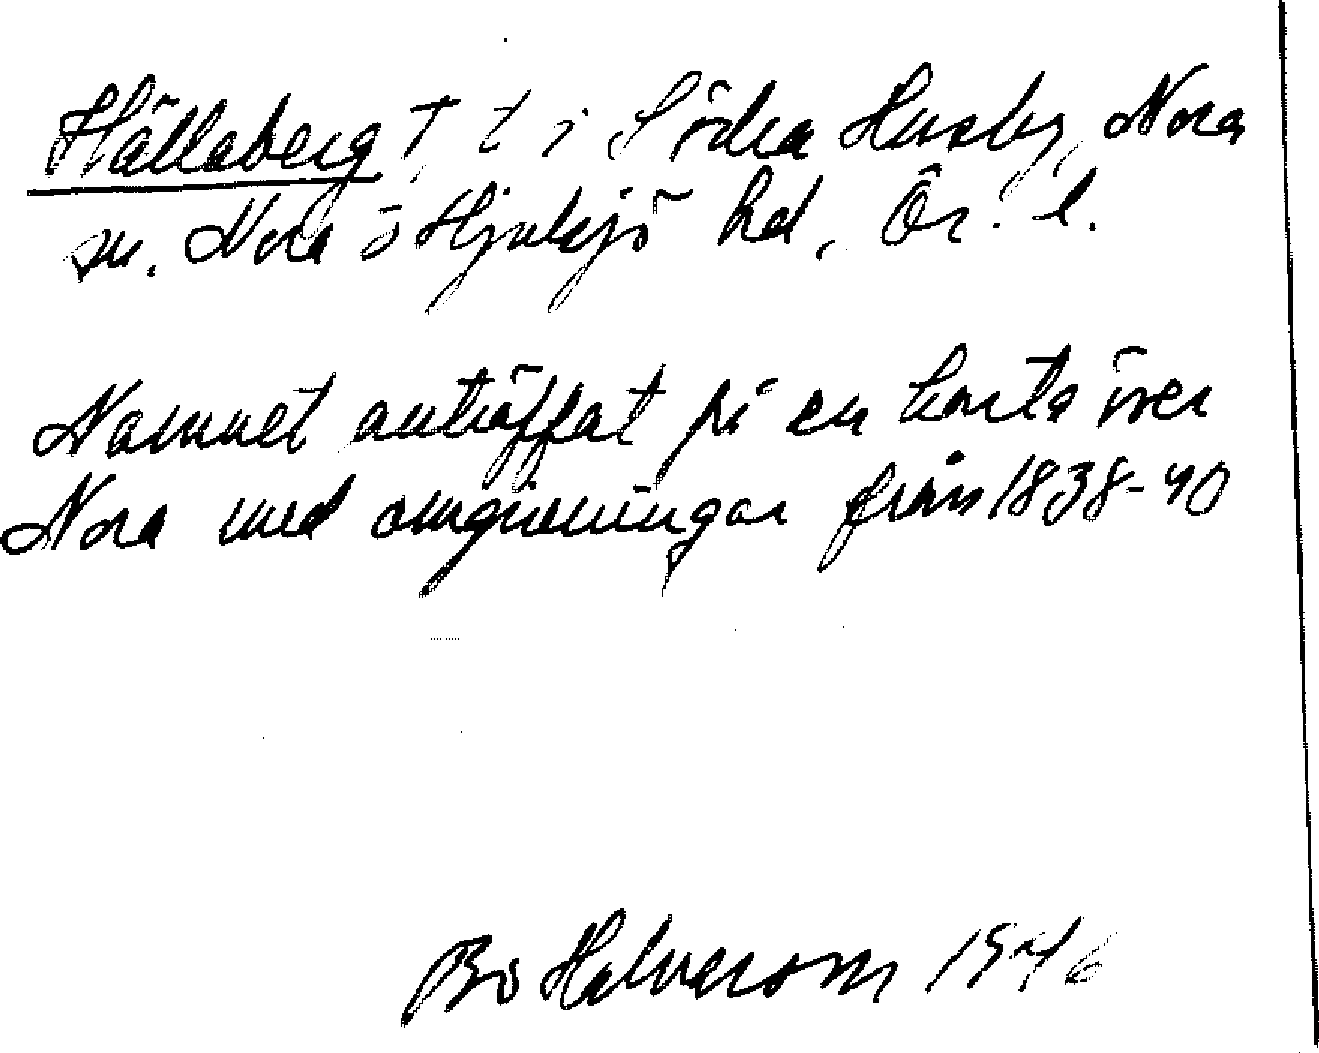 Hällaberg †, t i Södra Husby, Nora
sn. Nora o Hjulsjö hd, Ör. l.
Namnet anträffat på en karta över
Nora med omgivningar från 1838-40
Bo Halvarson 1946